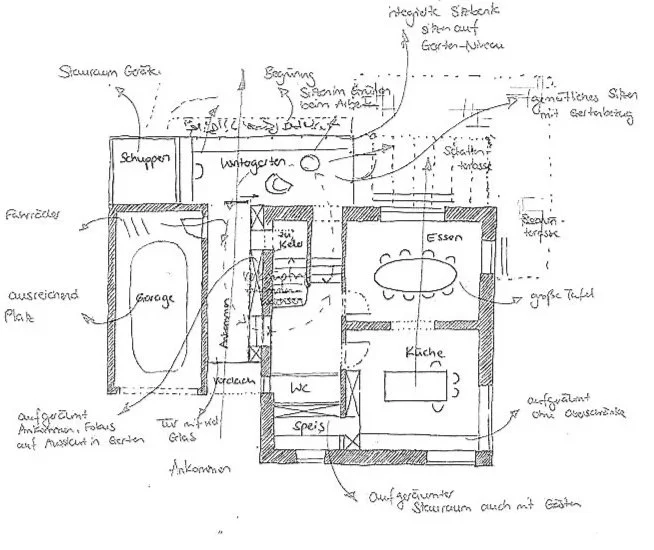 integrierte Sitzbank
sitzen auf
Garten-Niveau
Stauraum Geräte
Begrünung
Sitzen im Grünen
beim Arbeiten
gemütliches Sitzen
mit Gartenbezug
Schuppen
Wintergarten
Schatten-
terrasse
Fahrräder
zu
Keller
Essen
terrasse
ausreichend
Platz
Garage
Ankommen
große Tafel
Küche
Vordach
WC
aufgeräumt
Ankommen, Fokus
auf Aussicht in Garten
Tür mit viel
Glas
Speis
aufgeräumt
ohne Oberschränke
Ankommen
aufgeräumter
Stauraum auch mit Gästen